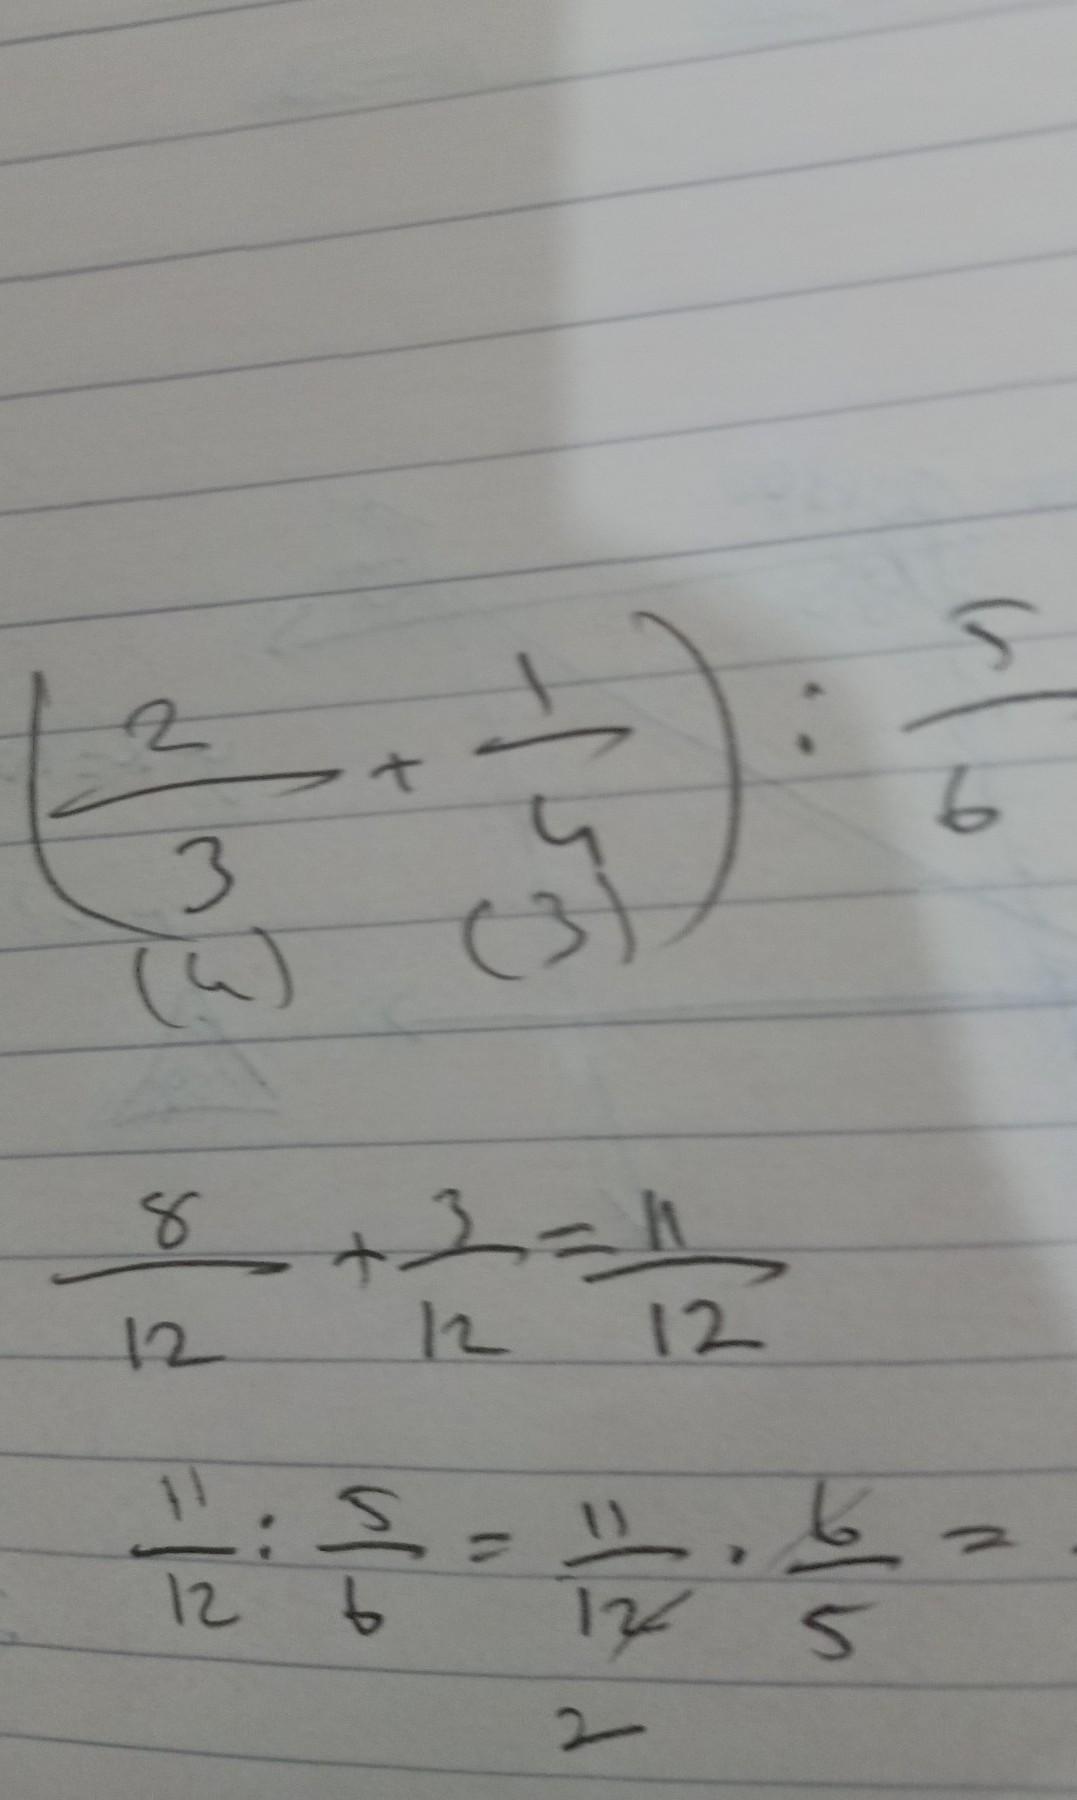 (2/3 + 1/4) : 5/6
(4) (3)
8/12 + 3/12 = 11/12
11/12 : 5/6 = 11/12 · 6/5 =
2